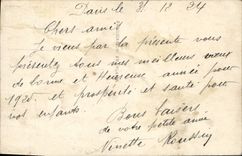 Paris le 31 12 24
Chers amis
Je viens par la présente vous
présenter tous mes meilleurs vœux
de bonne et Heureuse année pour
1925. et prospérité et santé pour
vos enfants.
Bons baisers
de votre petite amie
Ninette